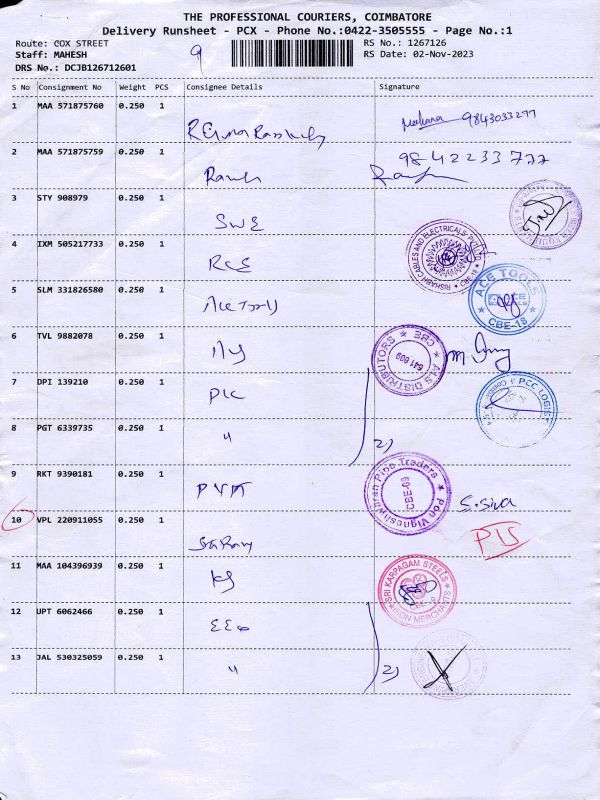 THE PROFESSIONAL COURIERS, COIMBATORE
Delivery Runsheet - PCX - Phone No.:0422-3505555 - Page No.:1
Route: COX STREET
Staff: MAHESH
DRS No.: DCJB126712601
9
RS No.: 1267126
RS Date: 02-Nov-2023
S No Consignment No Weight PCS Consignee Details Signature
1 MAA 571875760 0.250 1 9843033277
2 MAA 571875759 0.250 1 9842233777
3 STY 908979 0.250 1 SWE
4 IXM 505217733 0.250 1 RCE RISHABH CABLES AND ELECTRICALS
5 SLM 331826580 0.250 1 Ace Tools ACE TOOLS CBE-18
6 TVL 9882078 0.250 1 ALS DISTRIBUTORS CBE 641 009
7 DPI 139210 0.250 1 PLC PCC LOGIST
8 PGT 6339735 0.250 1 " 2)
9 RKT 9390181 0.250 1 PVPT Pon Vigneshwarah Pipe Traders CBE-09 S. Siva
10 VPL 220911055 0.250 1
11 MAA 104396939 0.250 1 KS SRI KARPAGAM STEELS IRON MERCHANTS
12 UPT 6062466 0.250 1
13 JAL 530325059 0.250 1 " 2)